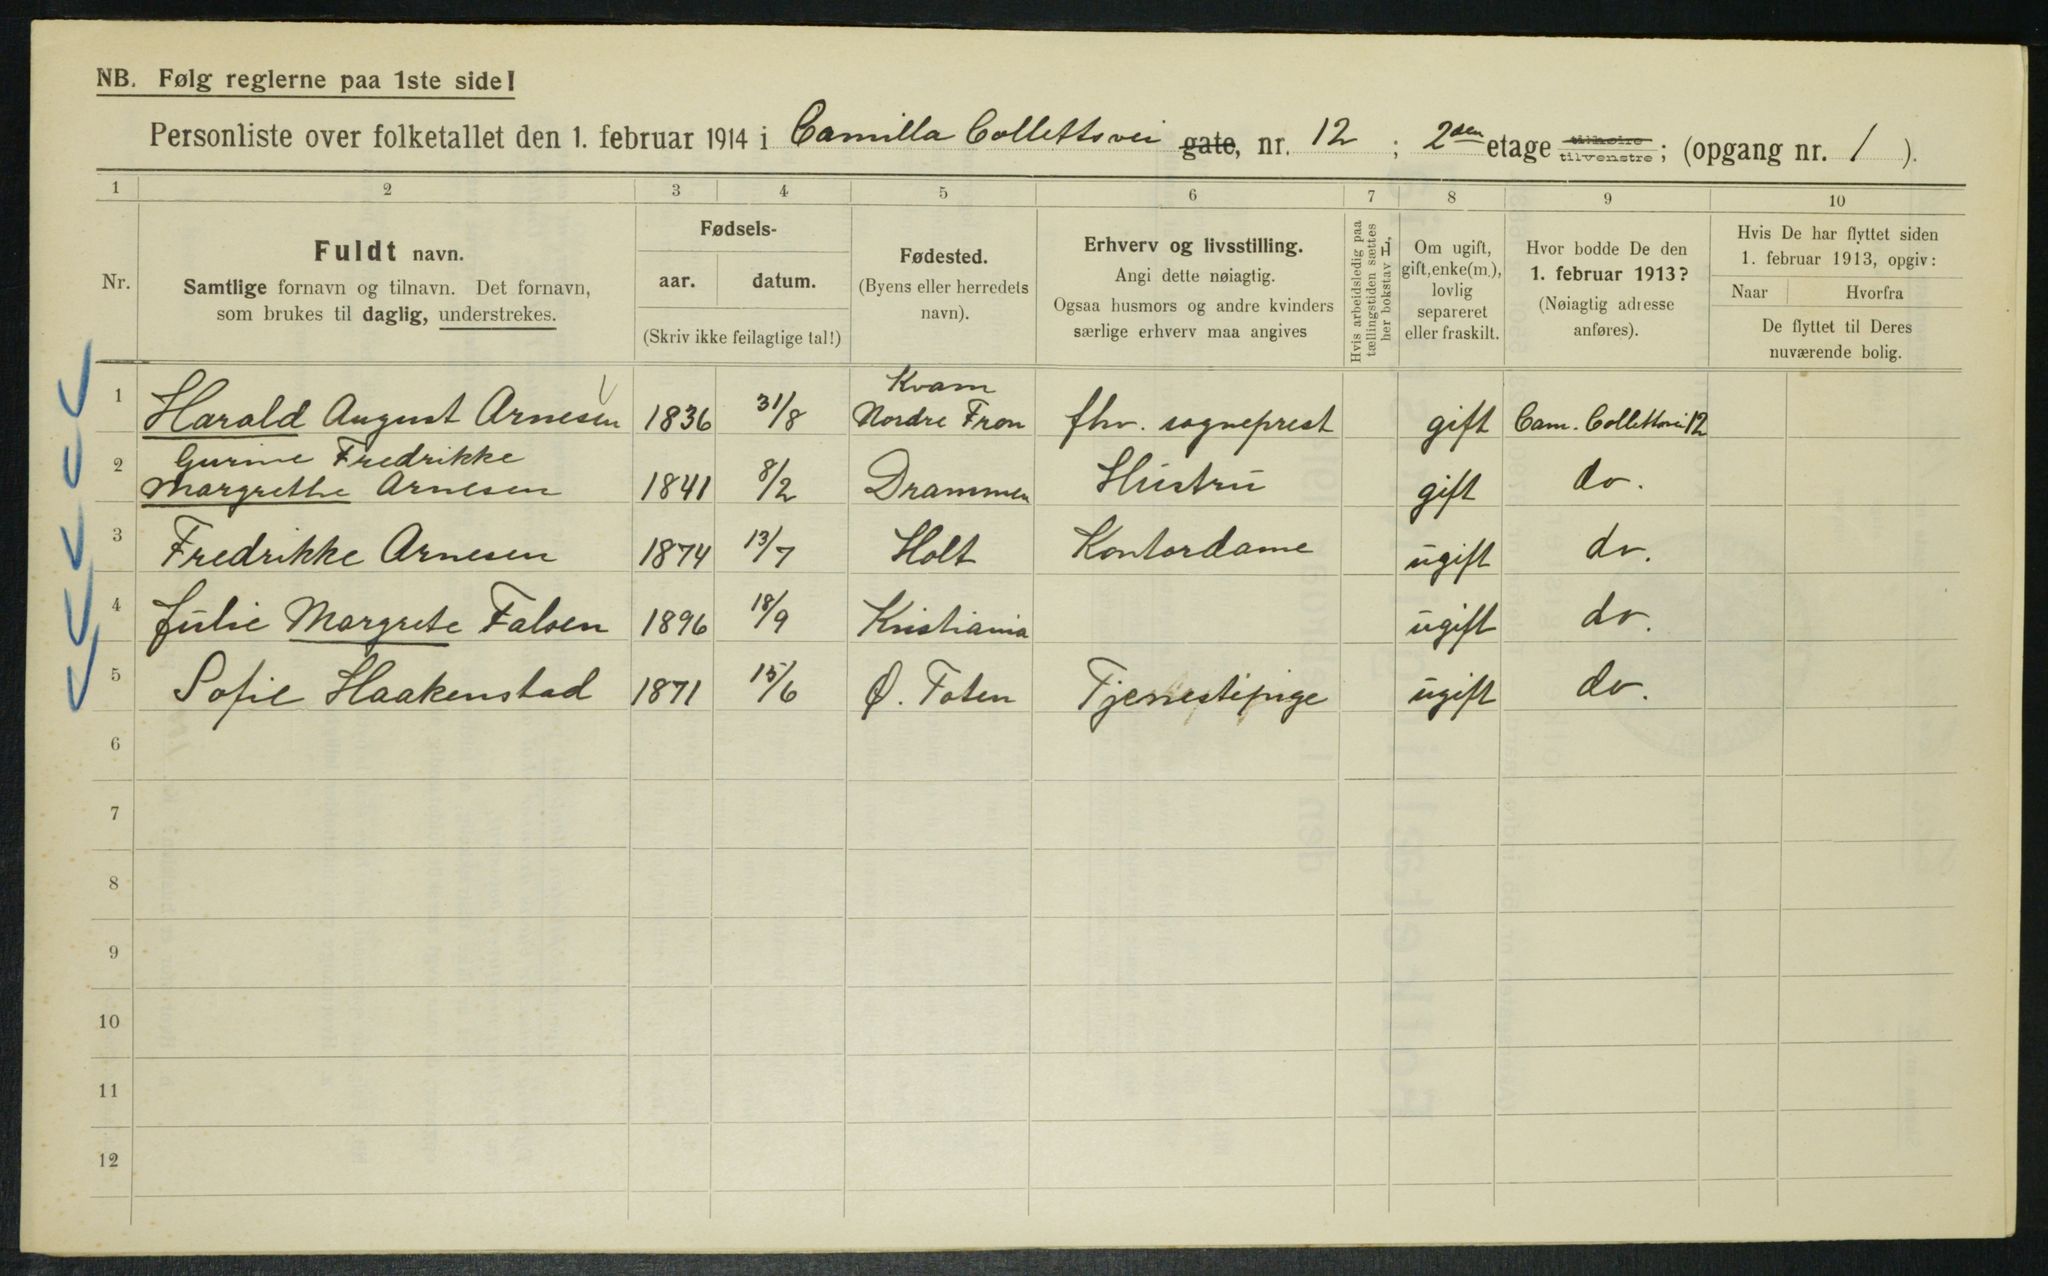 NB. Følg reglerne paa 1ste side!
Personliste over folketallet den 1. februar 1914 i Camilla Collettsvei gate, nr. 12 ; 2den etage tilhøire tilvenstre; (opgang nr. 1 ).
1 2 3 4 5 6 7 8 9 10
Nr.
Fuldt navn.
Samtlige fornavn og tilnavn. Det fornavn,
som brukes til daglig, understrekes.
Fødsels-
aar. datum.
(Skriv ikke feilagtige tal!)
Fødested.
(Byens eller herredets
navn).
Erhverv og livsstilling.
Angi dette nøiagtig.
Ogsaa husmors og andre kvinders
særlige erhverv maa angives
Hvis arbeidsledig paa
tællingstiden sættes
her bokstav L.
Om ugift,
gift, enke(m.),
lovlig
separeret
eller fraskilt.
Hvor bodde De den
1. februar 1913?
(Nøiagtig adresse
anføres).
Hvis De har flyttet siden
1. februar 1913, opgiv:
Naar Hvorfra
De flyttet til Deres
nuværende bolig.
Kvam
1 Harald August Arnesen 1836 31/8 Nordre Fron fhv. sogneprest gift Cam. Collettsvei 12
Gurine Fredrikke
2 Margrethe Arnesen 1841 8/2 Drammen Hustru gift do.
3 Fredrikke Arnesen 1874 13/7 Holt Kontordame ugift do.
4 Julie Margrete Falsen 1896 18/9 Kristiania ugift do.
5 Sofie Haakenstad 1871 15/6 Ø. Toten Tjenestepige ugift do.
6
7
8
9
10
11
12